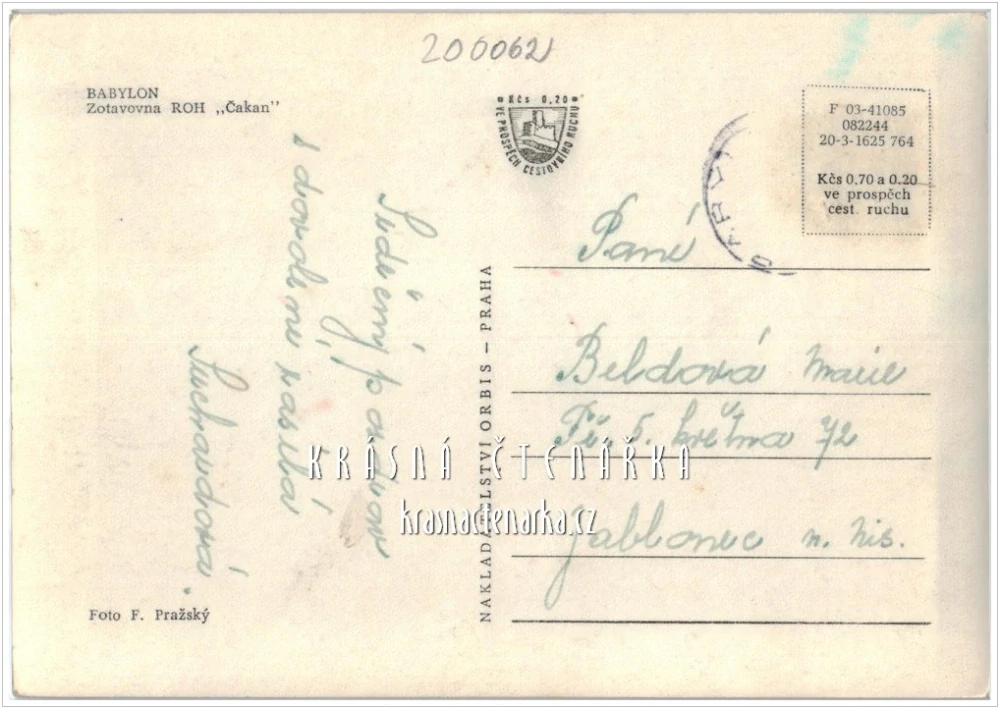 200062
BABYLON
Zotavovna ROH „Čakan”
Kčs 0,20
VE PROSPĚCH CESTOVNÍHO RUCHU
F 03-41085
082244
20-3-1625 764
Kčs 0,70 a 0.20
ve prospěch
cest. ruchu
Srdečný pozdrav
s dovolené zasílá
Suchandová.
NAKLADATELSTVÍ ORBIS — PRAHA
Paní
Beldová Marie
Tř. 5. května 72
Jablonec n. Nis.
KRÁSNÁ ČTENÁŘKA
krasnactenarka.cz
Foto F. Pražský